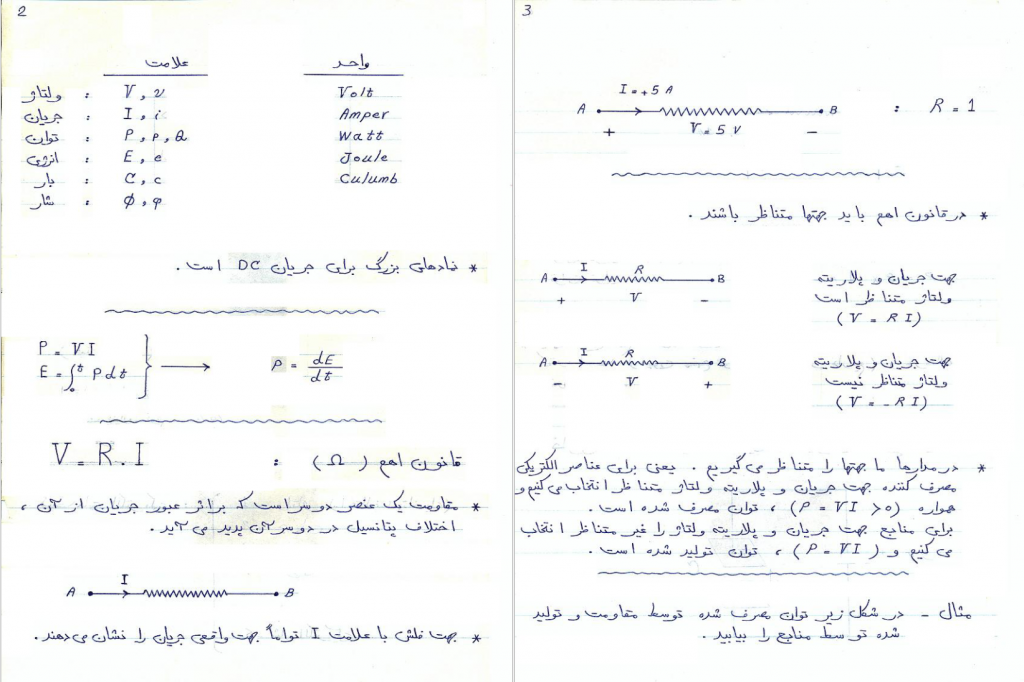 2
علامت واحد
ولتاژ : V , v Volt
جریان : I , i Amper
توان : P , p , Q Watt
انرژی : E , e Joule
بار : C , c Culumb
شار : Φ , φ
* نمادهای بزرگ برای جریان DC است .
P = VI
E = ∫₀ᵗ P dt } ⟶ P = dE/dt
قانون اهم ( Ω ) : V = R . I
* مقاومت یک عنصر دوسر است که براثر عبور جریان از آن ،
اختلاف پتانسیل در دوسر آن پدید می آید .
A I B
* جهت فلش با علامت I تواماً جهت واقعی جریان را نشان می دهند .
3
I = +5 A
A B : R = 1
+ V = 5 V −
* در قانون اهم باید جهتها متناظر باشند .
A I R B جهت جریان و پلاریته
+ V − ولتاژ متناظر است
( V = R I )
A I R B جهت جریان و پلاریته
− V + ولتاژ متناظر نیست
( V = − R I )
* در مدارها ما جهتها را متناظر می گیریم . یعنی برای عناصر الکتریکی
مصرف کننده جهت جریان و پلاریته ولتاژ متناظر انتخاب می کنیم و
همواره ( P = VI > 0 ) ، توان مصرف شده است .
برای منابع جهت جریان و پلاریته ولتاژ را غیر متناظر انتخاب
می کنیم و ( P = VI ) ، توان تولید شده است .
مثال - در شکل زیر توان مصرف شده توسط مقاومت و تولید
شده توسط منابع را بیابید .